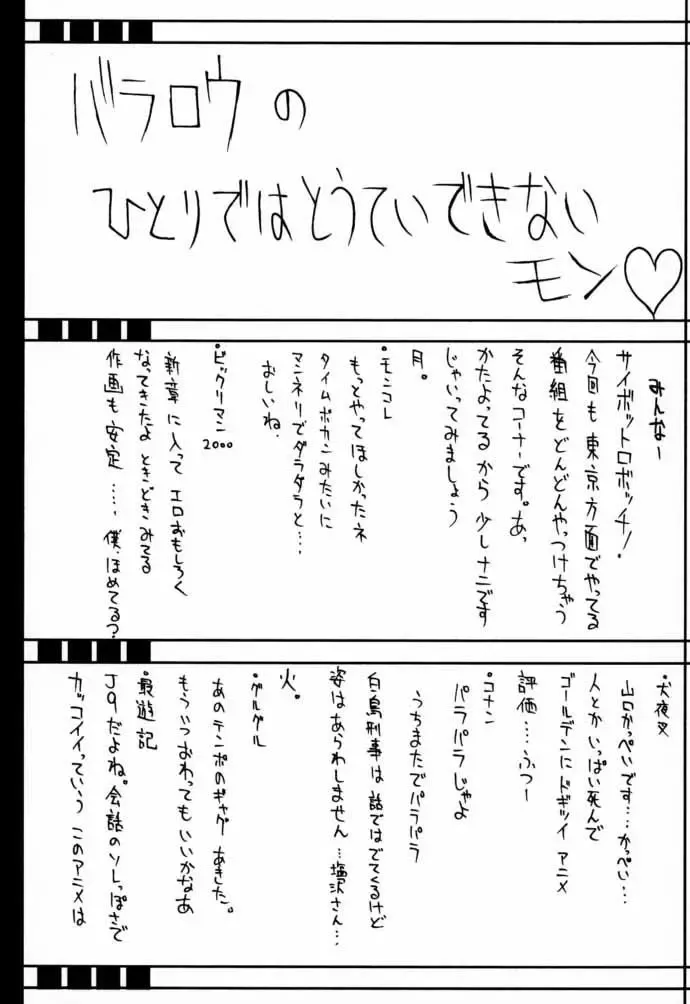 バラロウの
ひとりではとうていできない
モン♡
みんなー
サイボットロボッチ!
今回も東京方面でやってる
番組をどんどんやっつけちゃう
そんなコーナーです。あっ
かたよってるから少しナニです
じゃいってみましょう
月。
・モンコレ
もっとやってほしかったネ
タイムボカンみたいに
マンネリでダラダラと…
おしいね.
・ビックリマン2000
新章に入ってエロおもしろく
なってきたよときどきみてる
作画も安定……僕、ほめてる?
・犬夜叉
山口かっぺいです…かっぺい…
人とかいっぱい死んで
ゴールデンにドギツイアニメ
評価……ふつー
・コナン
パラパラじゃよ
うちまたでパラパラ
白鳥刑事は話ではでてくるけど
姿はあらわしません…塩沢さん…
火。
・グルグル
あのテンポのギャグあきた。
もういつおわってもいいかなあ
・最遊記
J9だよね。会話のソレっぽさで
カッコイイっていうこのアニメは